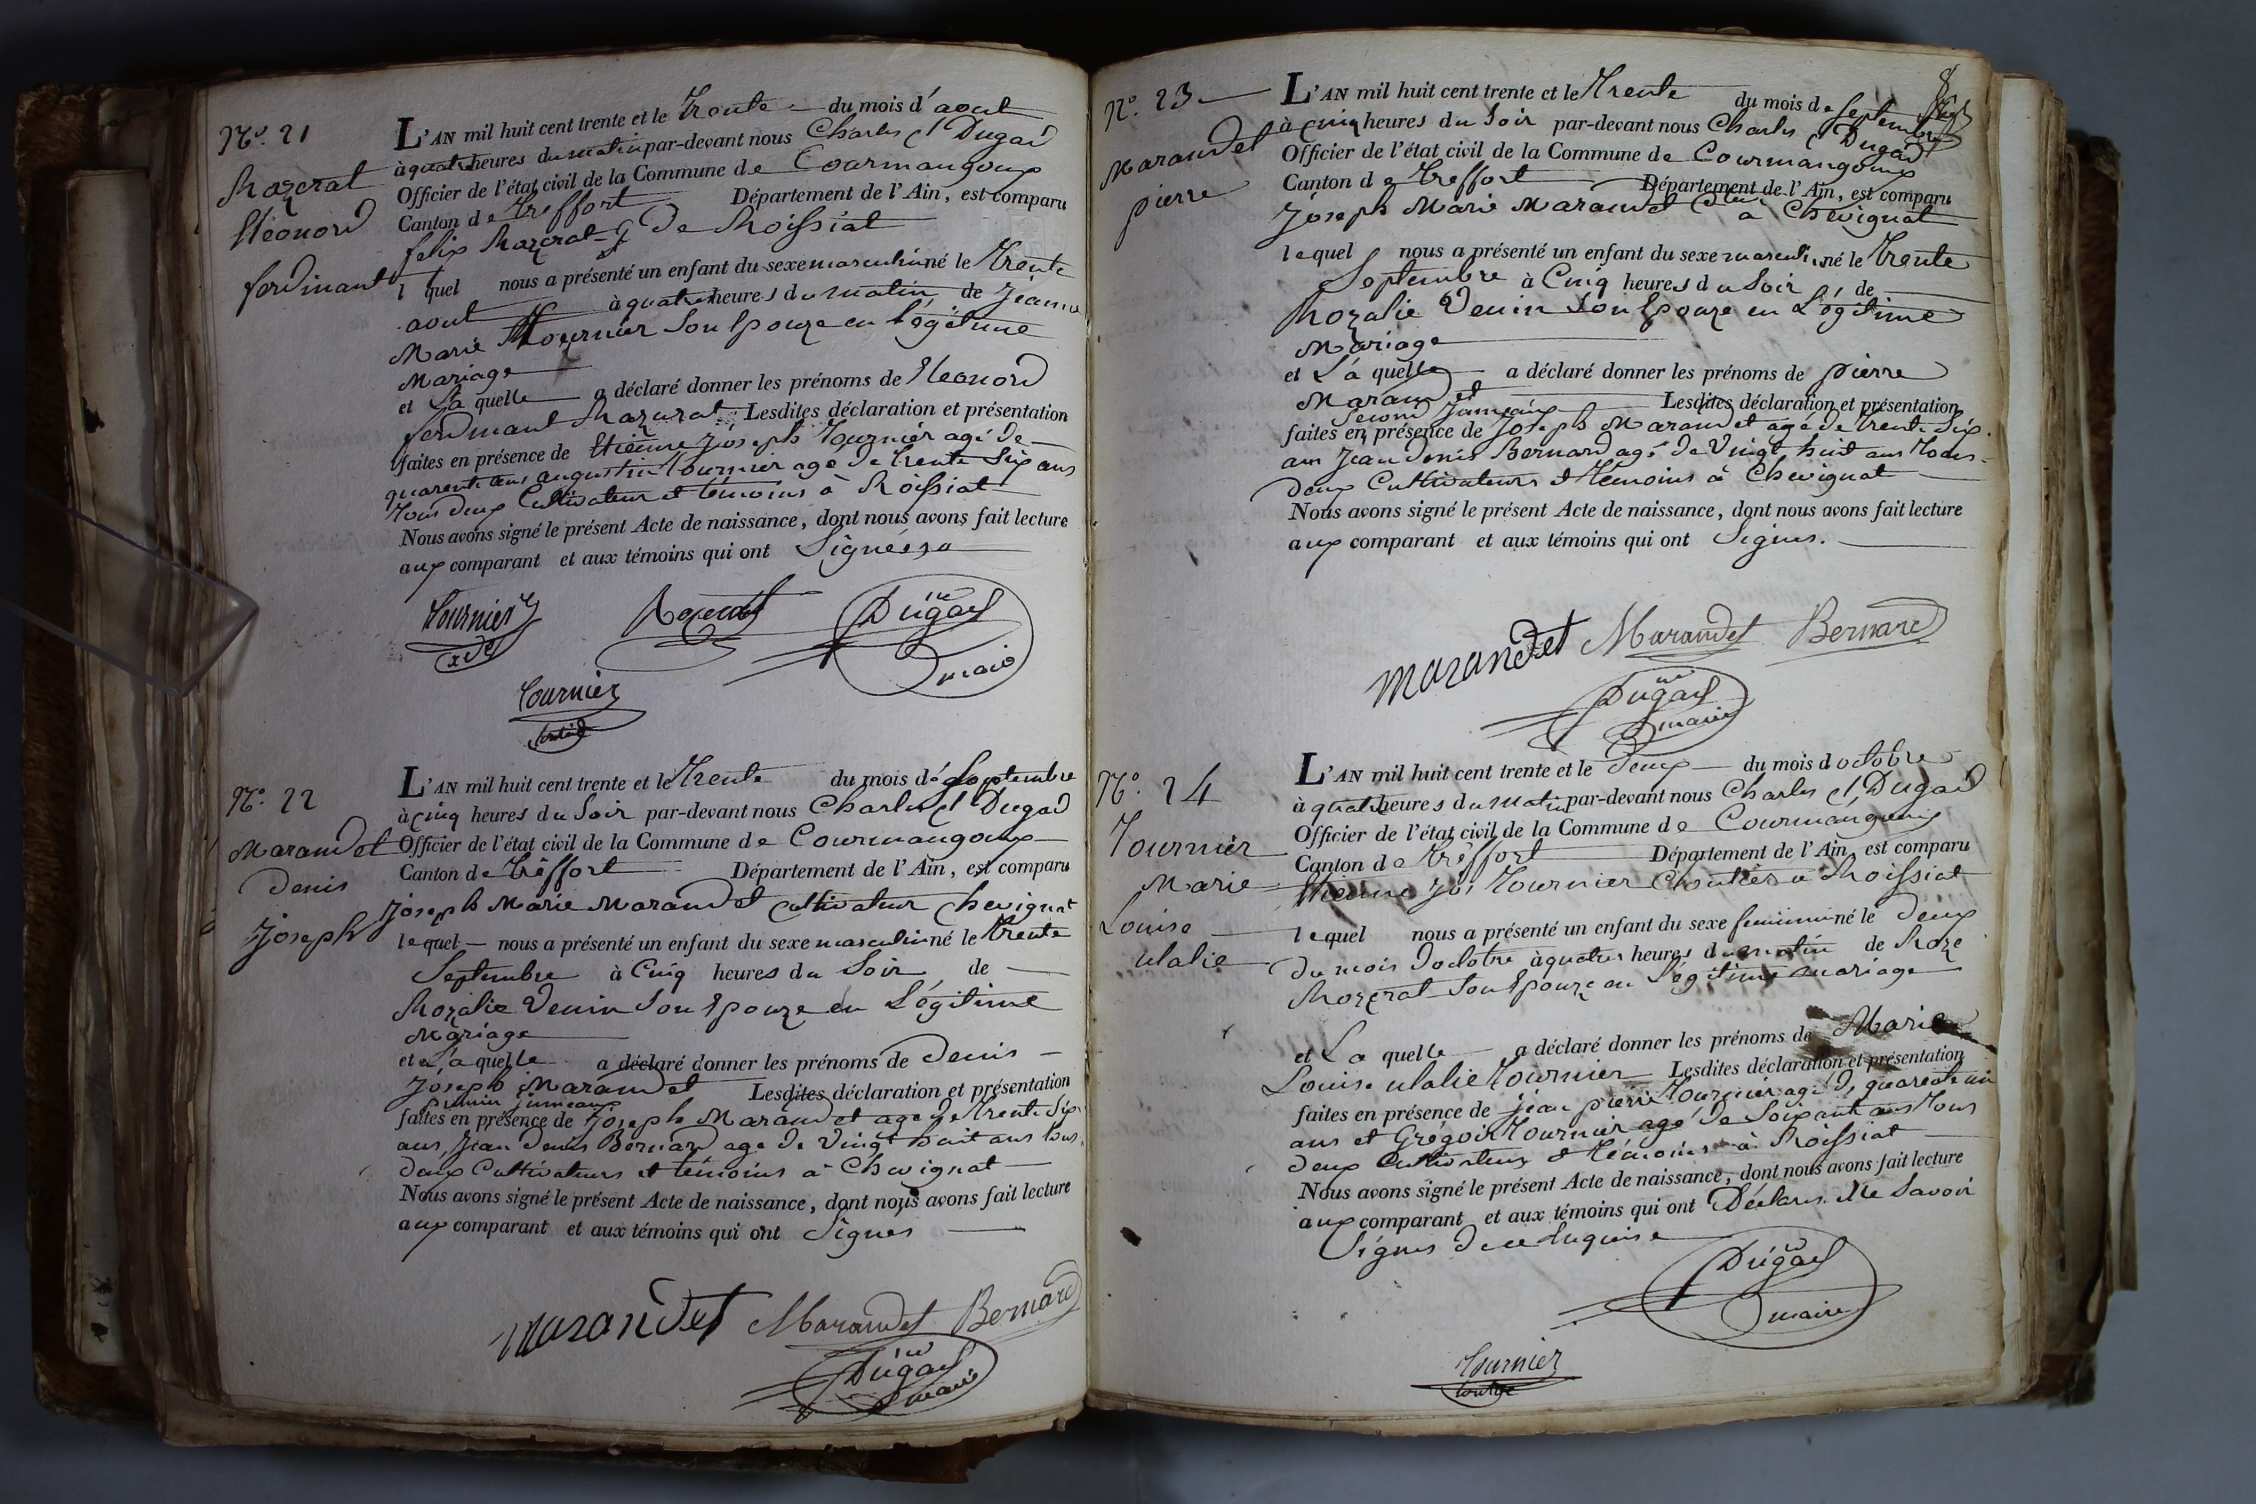 N.º 21
Rozerat
Eléonord
ferdinant
L'AN mil huit cent trente et le Trente du mois d'aout
à quatre heures du matin par-devant nous Charles Cl Dugad
Officier de l'état civil de la Commune de Courmangoux
Canton de treffort Département de l'Ain, est comparu
felix Rozerat de Roissiat
lequel nous a présenté un enfant du sexe masculin né le Trente
aout à quatre heures du matin de Jeanne
Marie Tournier Son Epouze en Légitime
Mariage
et La quelle a déclaré donner les prénoms de Eléonord
ferdinant Rozerat Lesdites déclaration et présentation
faites en présence de Etienne Joseph Tournier agé de
quarente ans augustin tournier agé de trente Six ans
Tous deux Cultivateurs et témoins à Roissiat
Nous avons signé le présent Acte de naissance, dont nous avons fait lecture
aux comparant et aux témoins qui ont Signées
Tournier
Rozerat
Dugad
maire
Tournier
N.º 22
Marandet
Denis
Joseph
L'AN mil huit cent trente et le Trente du mois de Septembre
à cinq heures du Soir par-devant nous Charles Cl Dugad
Officier de l'état civil de la Commune de Courmangoux
Canton de tréffort Département de l'Ain, est comparu
Joseph Marie Marandet cultivateur Chevignat
lequel nous a présenté un enfant du sexe masculin né le Trente
Septembre à Cinq heures du Soir de
Rozalie Venin Son Epouze en Légitime
Mariage
et La quelle a déclaré donner les prénoms de Denis
Joseph Marandet Lesdites déclaration et présentation
premier jumeaux
faites en présence de Joseph Marandet agé de trente Six
ans, Jean Denis Bernard agé de Vingt huit ans tous
deux Cultivateurs et témoins à Chevignat
Nous avons signé le présent Acte de naissance, dont nous avons fait lecture
aux comparant et aux témoins qui ont Signés
marandet Marandet Bernard
Dugad
maire
8
N.º 23
Marandet
pierre
L'AN mil huit cent trente et le Trente du mois de Septembre
à cinq heures du Soir par-devant nous Charles Cl Dugad
Officier de l'état civil de la Commune de Courmangoux
Canton de treffort Département de l'Ain, est comparu
Joseph Marie Marandet à Chevignat
lequel nous a présenté un enfant du sexe masculin né le Trente
Septembre à Cinq heures du Soir de
Rozalie Venin Son Epouze en Légitime
Mariage
et La quelle a déclaré donner les prénoms de pierre
Marandet Lesdites déclaration et présentation
Second Jumeaux
faites en présence de Joseph Marandet agé de trente Six
ans Jean Denis Bernard agé de Vingt huit ans Tous
deux Cultivateurs et Témoins à Chevignat
Nous avons signé le présent Acte de naissance, dont nous avons fait lecture
aux comparant et aux témoins qui ont Signés.
marandet Marandet Bernard
Dugad
maire
N.º 24
Tournier
Marie
Louise
ulalie
L'AN mil huit cent trente et le Deux du mois d octobre
à quatre heures du matin par-devant nous Charles Cl Dugad
Officier de l'état civil de la Commune de Courmangoux
Canton de tréffort Département de l'Ain, est comparu
Etienne Jos Tournier à Roissiat
lequel nous a présenté un enfant du sexe feminin né le Deux
du mois Doctobre à quatre heures du matin de Roze
Rozerat Son Epouze en Légitime mariage
et La quelle a déclaré donner les prénoms de Marie
Louise ulalie Tournier Lesdites déclaration et présentation
faites en présence de jean pierre Tournier agé de quarente un
ans et Grégoire Tournier agé de Soixante ans Tous
deux Cultivateurs et Témoins à Roissiat
Nous avons signé le présent Acte de naissance, dont nous avons fait lecture
aux comparant et aux témoins qui ont Déclarés Ne Savoir
Signés De ce Enquise
Dugad
maire
Tournier